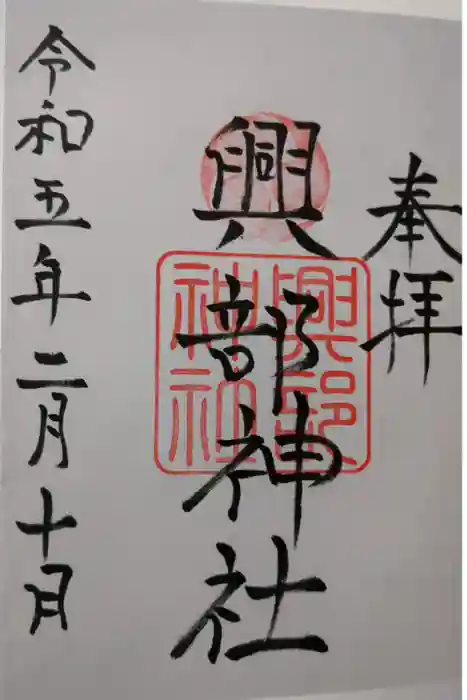 奉拝
興部神社
興部神社
令和五年二月十日